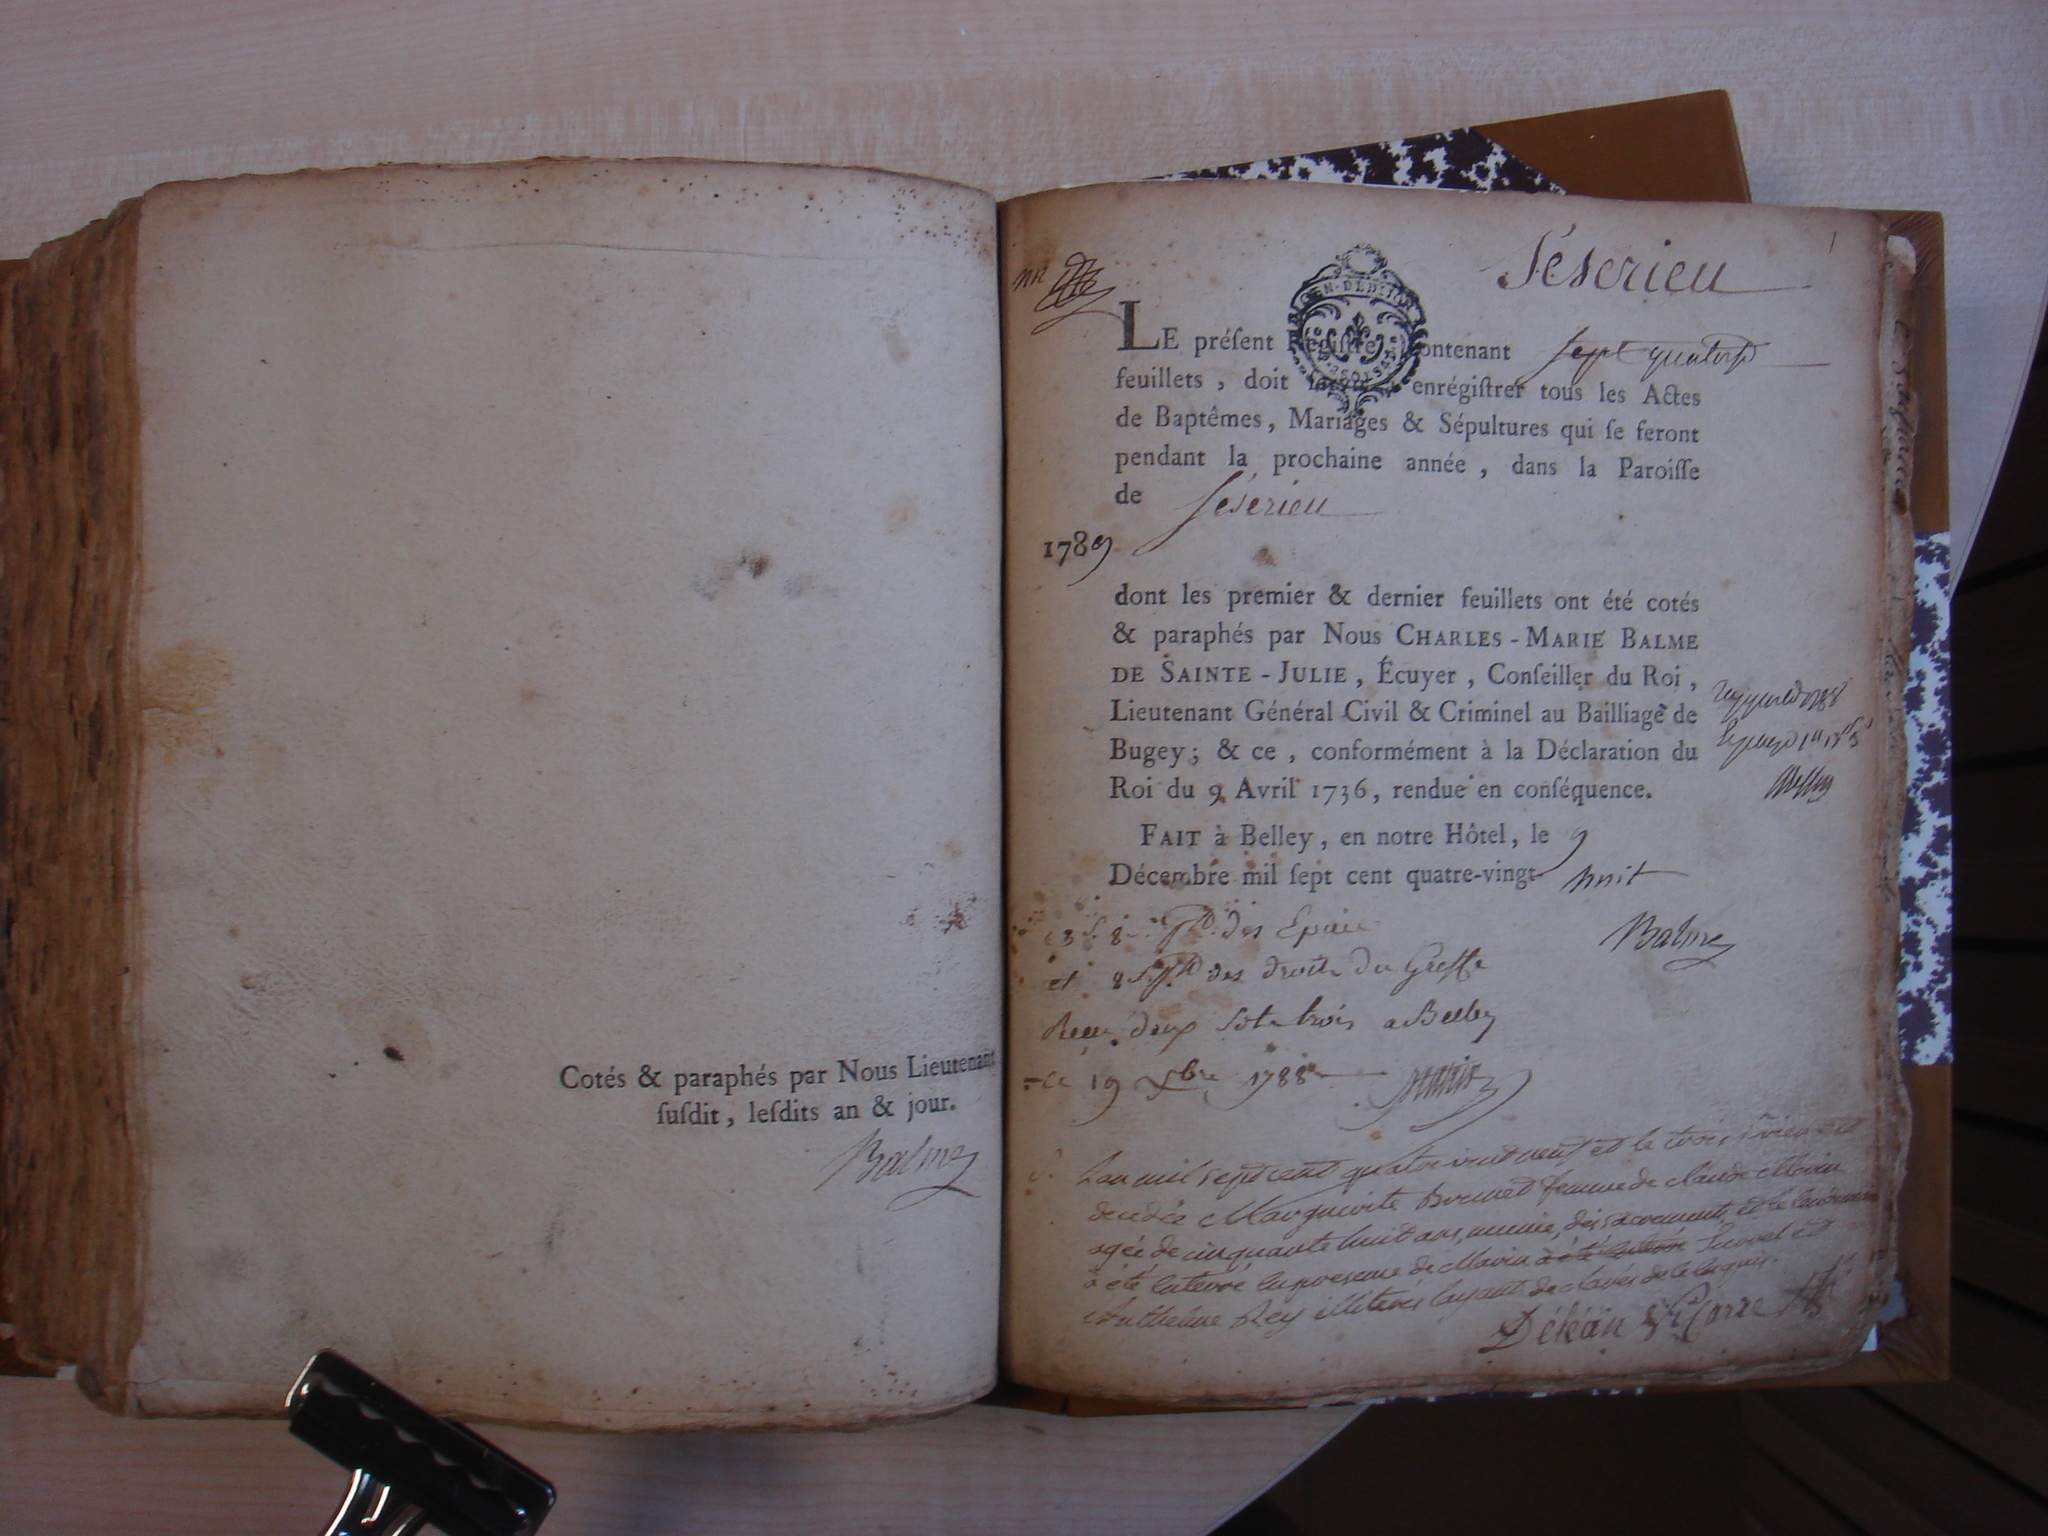 Cotés & paraphés par Nous Lieutenant
ſuſdit, leſdits an & jour.
Balme
Séserieu
1
LE préſent Régiſtre, contenant sept
feuillets, doit ſervir à enrégiſtrer tous les Actes
de Baptêmes, Mariages & Sépultures qui ſe feront
pendant la prochaine année, dans la Paroiſſe
de Séserieu
1789
dont les premier & dernier feuillets ont été cotés
& paraphés par Nous CHARLES-MARIE BALME
DE SAINTE-JULIE, Écuyer, Conſeiller du Roi,
Lieutenant Général Civil & Criminel au Bailliage de
Bugey; & ce, conformément à la Déclaration du
Roi du 9 Avril 1736, rendue en conſéquence.
FAIT à Belley, en notre Hôtel, le 9
Décembre mil ſept cent quatre-vingt-huit
Balme
des Epices
et 8 s. des droits du Greffe
Reçu deux sols trois a Belley
ce 19 Xbre 1788
S. L'an mil sept cent quatre vint neuf et le trois janvier est
decedée Marguerite femme de claude Marin
agée de cinquante huit ans, munie des sacrements, et le lendemain
a été enterré en presence de Marin a été enterré et
Anthelme Rey illiterés layant declarés de le requis.